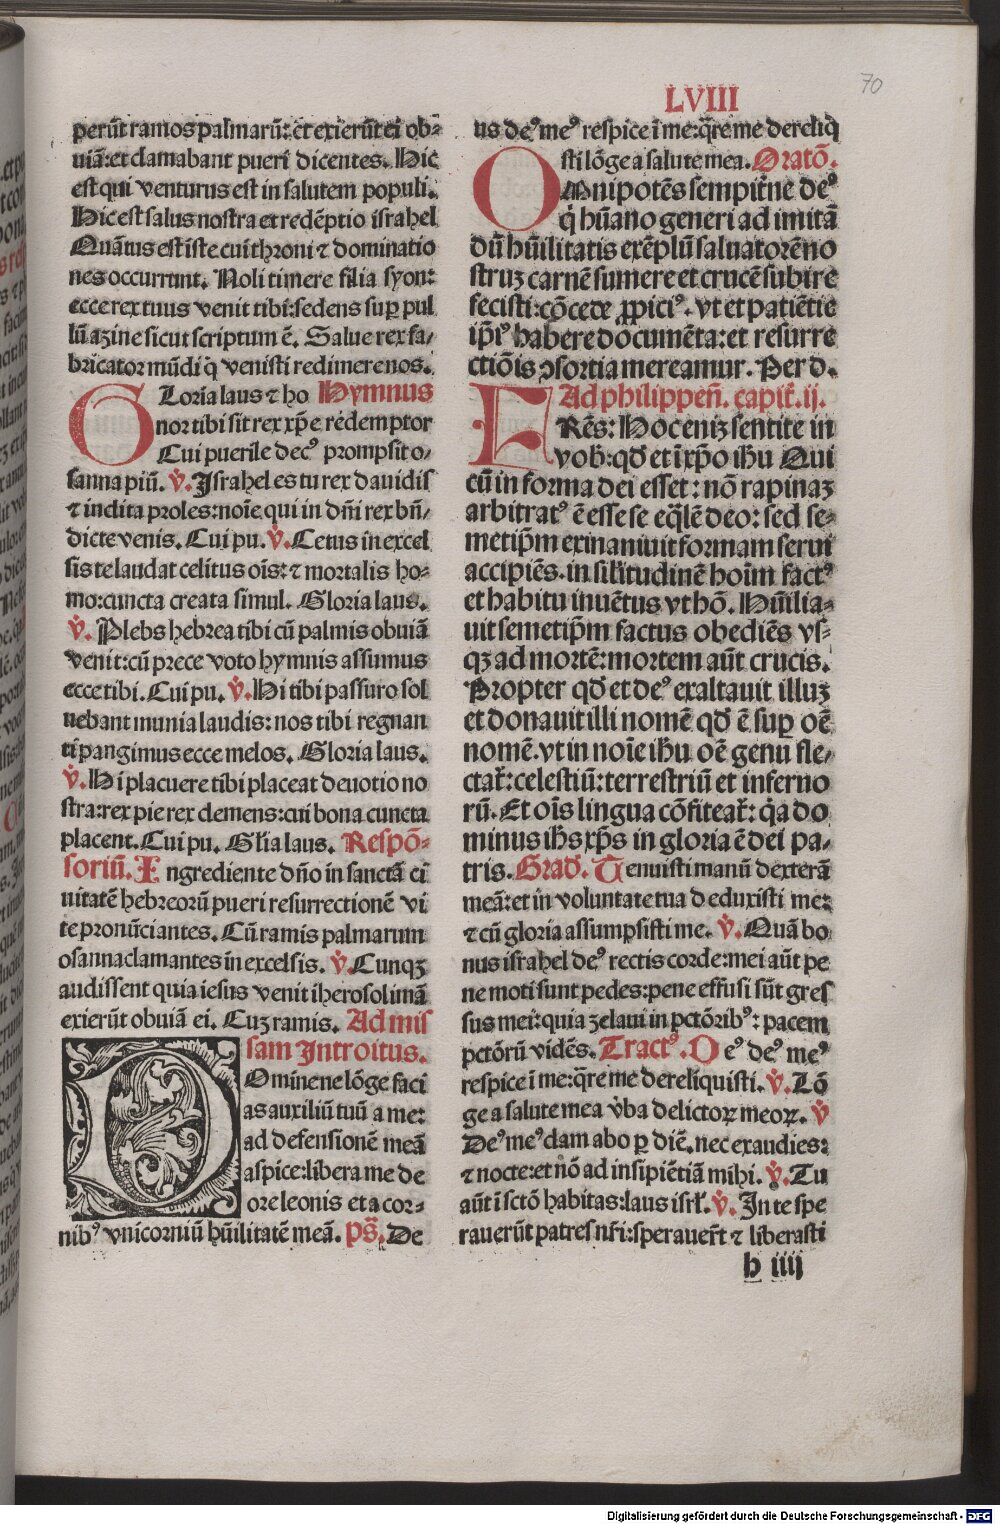 70
LVIII
perūt ramos palmarū: et exierūt ei ob⸗
uiā: et clamabant pueri dicentes. Hic
est qui venturus est in salutem populi.
Hic est salus nostra et redēptio israhel
Quātus est iste cui throni ⁊ dominatio
nes occurrunt. Noli timere filia syon:
ecce rex tuus venit tibi: sedens suꝑ pul
lū azine sicut scriptum ē. Salue rex fa⸗
bricator mūdi q̇ venisti redimere nos.
GLoria laus ⁊ ho Hymnus
nor tibi sit rex xp̄e redemptor
Cui puerile decꝰ prompsit o⸗
sanna piū. v̇. Israhel es tu rex dauidis
⁊ inclita proles: noīe qui in dn̄i rex bn̄⸗
dicte venis. Cui pu. v̇. Cetus in excel
sis te laudat celitus oīs: ⁊ mortalis ho⸗
mo: cuncta creata simul. Gloria laus.
v̇. Plebs hebrea tibi cū palmis obuiā
venit: cū prece voto hymnis assumus
ecce tibi. Cui pu. v̇. Hi tibi passuro sol
uebant munia laudis: nos tibi regnan
ti pangimus ecce melos. Gloria laus.
v̇. Hi placuere tibi placeat deuotio no
stra: rex pie rex clemens: cui bona cuncta
placent. Cui pu. Gl'ia laus. Respō⸗
soriū. Ingrediente dn̄o in sanctā ci
uitatē hebreorū pueri resurrectionē vi
te pronūciantes. Cū ramis palmarum
osanna clamantes in excelsis. v̇. Cunqꝫ
audissent quia iesus venit iherosolimā
exierūt obuiā ei. Cuꝫ ramis. Ad mis
sam Introitus.
DOmine ne lōge faci
as auxiliū tuū a me:
ad defensionē meā
aspice: libera me de
ore leonis et a cor⸗
nibꝰ vnicorniū hūilitatē meā. ps̄. De
us deꝰ meꝰ respice ī me: q̄re me dereliq̄
sti lōge a salute mea. Oratō.
OMnipotēs sempit̄ne deꝰ
q̇ hūano generi ad imitā
dū hūilitatis exēplū saluatorē no
struꝫ carnē sumere et crucē subire
fecisti: cōcede ꝓpiciꝰ. vt et patiētie
ip̄iꝰ habere documēta: et resurre
ctiōis ꝯsortia mereamur. Per d.
Ad philippen̄. capit̄. ij.
FRēs: Hoc eniꝫ sentite in
vob: qd̄ et ī xp̄o ihu Qui
cū in forma dei esset: nō rapinaꝫ
arbitratꝰ ē esse se eq̄lē deo: sed se⸗
metip̄m exinaniuit formam serui
accipiēs. in sil'itudinē hoīm factꝰ
et habitu inuētus vt hō. Hūilia⸗
uit semetip̄m factus obediēs vs⸗
qꝫ ad mortē: mortem aūt crucis.
Propter qd̄ et deꝰ exaltauit illuꝫ
et donauit illi nomē qd̄ ē suꝑ oē
nomē. vt in noīe ihu oē genu fle⸗
ctat̄: celestiū: terrestriū et inferno
rū. Et oīs lingua cōfiteat̄: q̇a do
minus ihs xp̄s in gloria ē dei pa⸗
tris. Grad̄. Tenuisti manū dexterā
meā: et in voluntate tua deduxisti me:
⁊ cū gloria assumpsisti me. v̇. Quā bo
nus israhel deꝰ rectis corde: mei aūt pe
ne moti sunt pedes: pene effusi sūt gres
sus mei: quia zelaui in pctōribꝰ: pacem
pctōrū vidēs. Tractꝰ. Deꝰ deꝰ meꝰ
respice ī me: q̄re me dereliquisti. v̇. Lō
ge a salute mea v̇ba delictoꝝ meoꝝ. v̇
Deꝰ meꝰ clamabo ꝑ diē. nec exaudies:
⁊ nocte: et nō ad insipiētiā mihi. v̇. Tu
aūt ī sctō habitas: laus isrl'. v̇. In te spe
rauerūt patres nr̄i: sperauer̄t ⁊ liberasti
h iiij
Digitalisierung gefördert durch die Deutsche Forschungsgemeinschaft - DFG